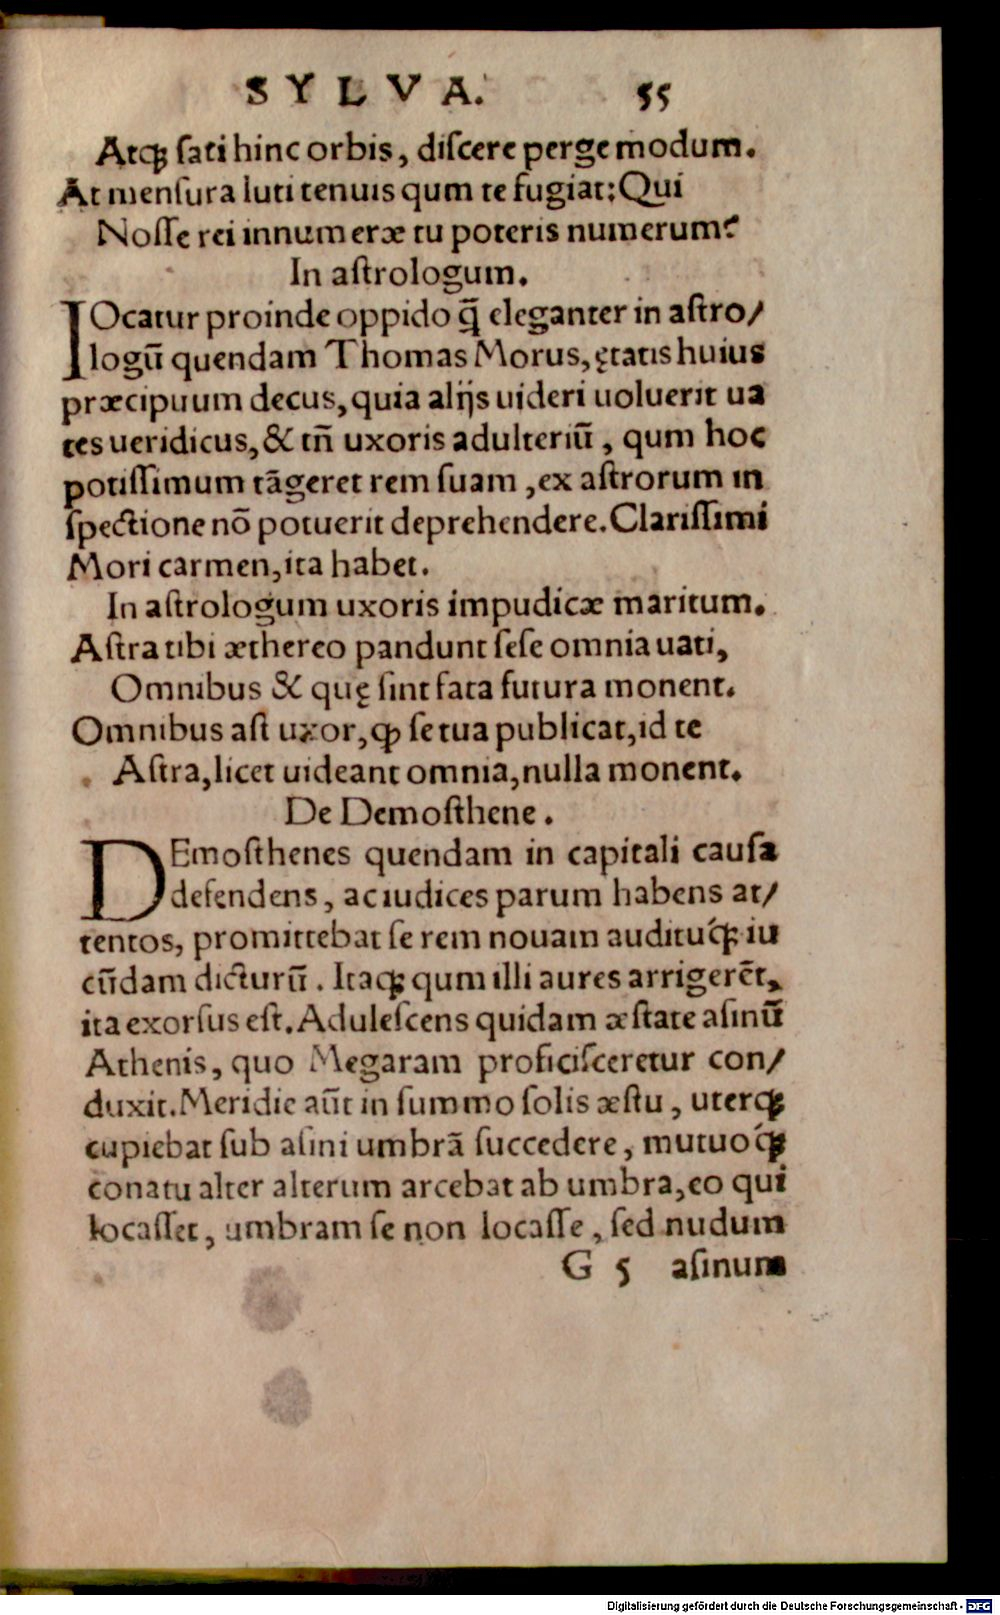 SYLVA. 55
Atq́ꝫ ſati hinc orbis, diſcere perge modum.
At menſura luti tenuis qum te fugiat: Qui
Noſſe rei innumeræ tu poteris numerum?
In aſtrologum.
IOcatur proinde oppido q̄ eleganter in aſtro/
logū quendam Thomas Morus, ętatis huius
præcipuum decus, quia alijs uideri uoluerit ua
tes ueridicus, & tñ uxoris adulteriū, qum hoc
potiſſimum tāgeret rem ſuam, ex aſtrorum in
ſpectione nō potuerit deprehendere. Clariſſimi
Mori carmen, ita habet.
In aſtrologum uxoris impudicæ maritum.
Aſtra tibi æthereo pandunt ſeſe omnia uati,
Omnibus & quę ſint fata futura monent.
Omnibus aſt uxor, ꝙ ſe tua publicat, id te
Aſtra, licet uideant omnia, nulla monent.
De Demoſthene.
DEmoſthenes quendam in capitali cauſa
defendens, ac iudices parum habens at/
tentos, promittebat ſe rem nouam audituq́ꝫ iu
cūdam dicturū. Itaqꝫ qum illi aures arrigerēt,
ita exorſus eſt. Aduleſcens quidam æſtate aſinū
Athenis, quo Megaram proficiſceretur con/
duxit. Meridie aūt in ſummo ſolis æſtu, uterqꝫ
cupiebat ſub aſini umbrā ſuccedere, mutuoq́ꝫ
conatu alter alterum arcebat ab umbra, eo qui
locaſſet, umbram ſe non locaſſe, ſed nudum
G 5 aſinum
Digitalisierung gefördert durch die Deutsche Forschungsgemeinschaft - DFG